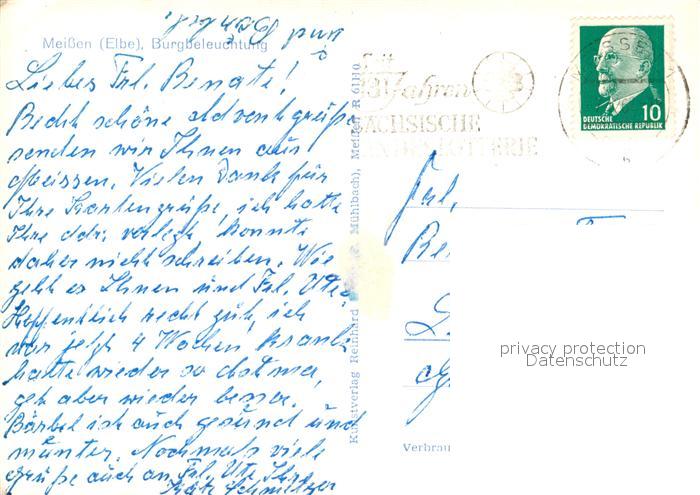 und Bärbel.
Meißen (Elbe), Burgbeleuchtung
Liebes Frl. Benate!
Recht schöne Adventgrüße
senden wir Ihnen aus
Meissen. Vielen Dank für
Ihre Kartengrüße, ich hatte
Ihre Adr. verlegt konnte
daher nicht schreiben. Wie
geht es Ihnen und Frl. Ute,
Hoffentlich recht gut, ich
war jetzt 4 Wochen krank
hatte wieder so Astma,
geh aber wieder besser.
Bärbel ist auch gesund und
munter. Nochmals viele
Grüße auch an Frl. Ute, Ihre
Käte Schmeltzer
Kunstverlag Reinhard Mühlbach), Meißen R 61110
Seit
Jahren
SÄCHSISCHE
LANDESLOTTERIE
10
DEUTSCHE
DEMOKRATISCHE REPUBLIK
Frl.
Be
privacy protection
Datenschutz
Verbrau